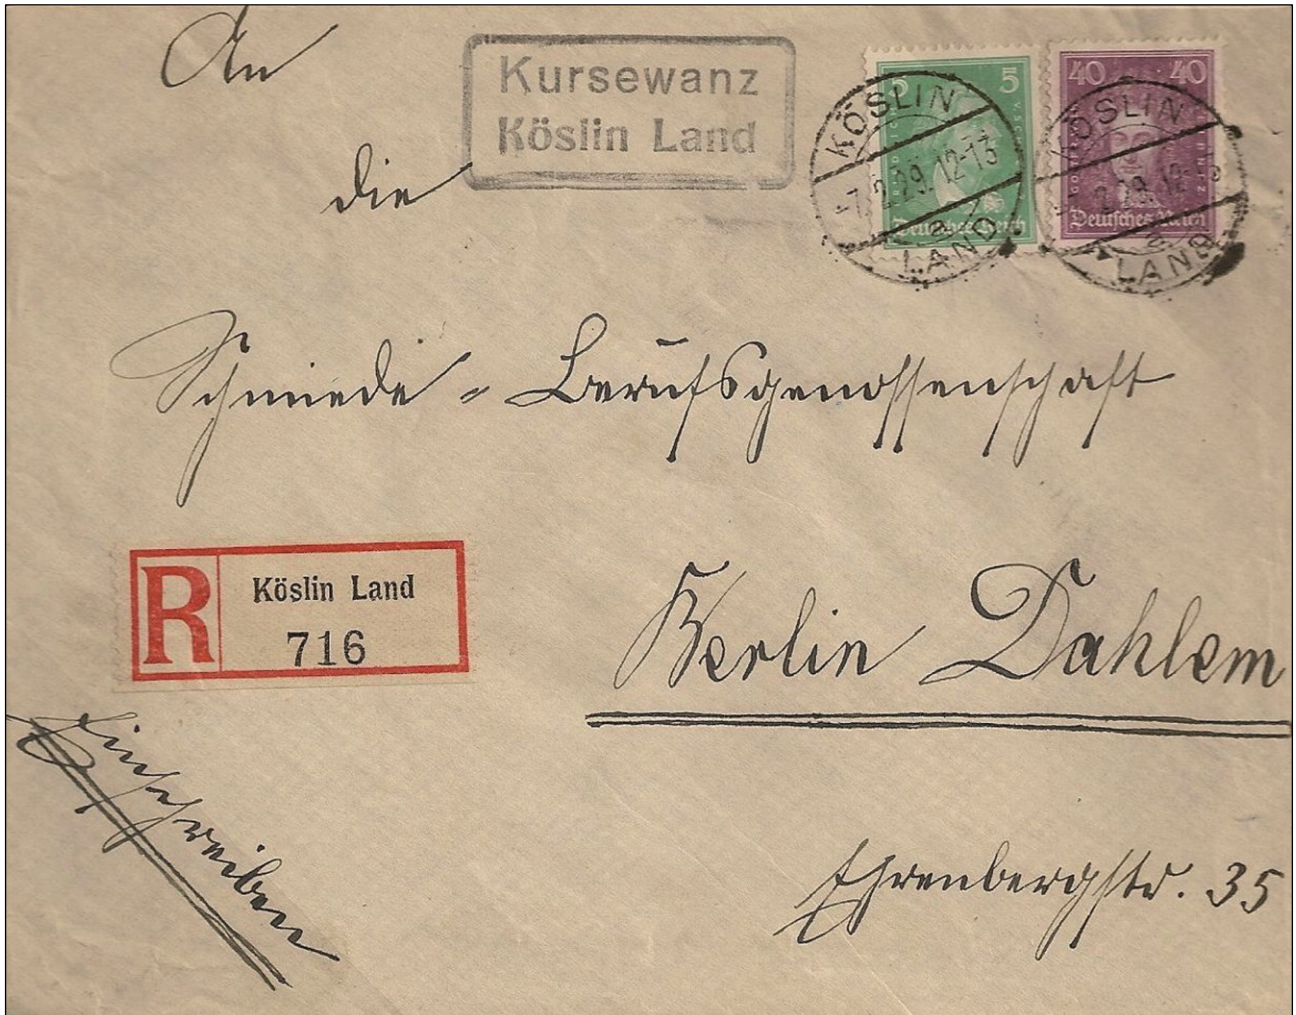 An
Kursewanz
Köslin Land
die
5 5
FRIEDRICH V. SCHILLER
Deutsches Reich
KÖSLIN
-7.2.29.12-13
a
LAND
40 40
Deutsches Reich
KÖSLIN
2.29.12-13
a
LAND
Schmiede-Berufsgenossenschaft
R
Köslin Land
716
Berlin Dahlem
Einschreiben
Ehrenbergstr. 35